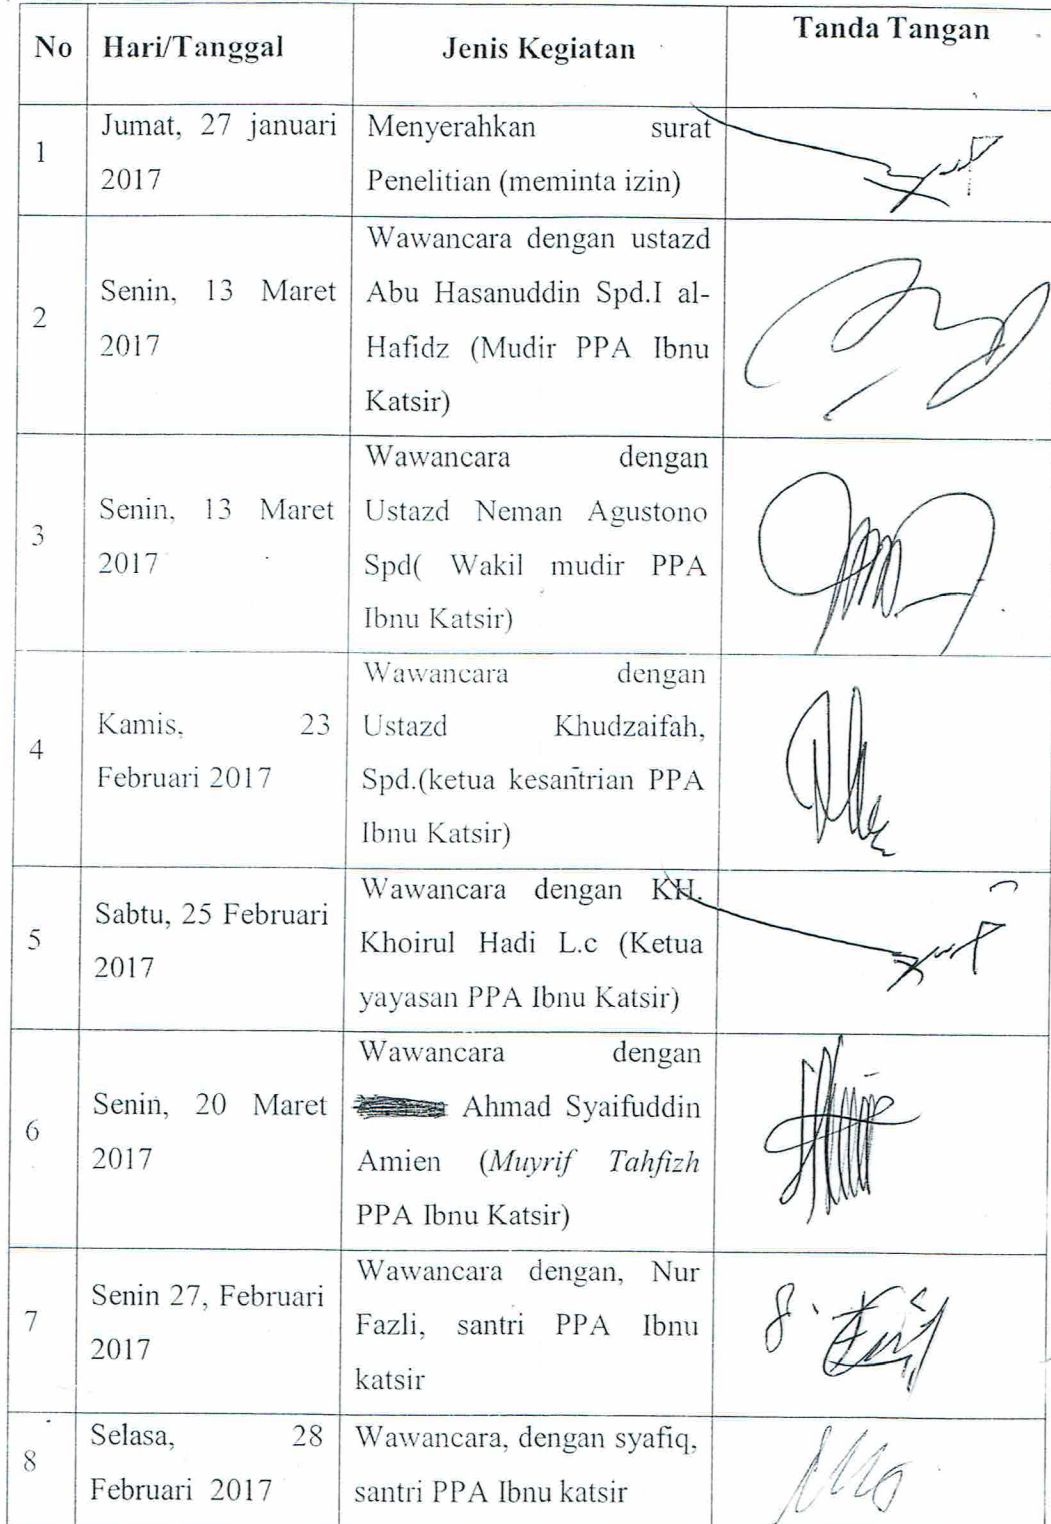 No Hari/Tanggal Jenis Kegiatan Tanda Tangan
1
Jumat, 27 januari
2017
Menyerahkan surat
Penelitian (meminta izin)
2
Senin, 13 Maret
2017
Wawancara dengan ustazd
Abu Hasanuddin Spd.I al-
Hafidz (Mudir PPA Ibnu
Katsir)
3
Senin, 13 Maret
2017
Wawancara dengan
Ustazd Neman Agustono
Spd( Wakil mudir PPA
Ibnu Katsir)
4
Kamis, 23
Februari 2017
Wawancara dengan
Ustazd Khudzaifah,
Spd.(ketua kesantrian PPA
Ibnu Katsir)
5
Sabtu, 25 Februari
2017
Wawancara dengan KH.
Khoirul Hadi L.c (Ketua
yayasan PPA Ibnu Katsir)
6
Senin, 20 Maret
2017
Wawancara dengan
Ahmad Syaifuddin
Amien (Muyrif Tahfizh
PPA Ibnu Katsir)
7
Senin 27, Februari
2017
Wawancara dengan, Nur
Fazli, santri PPA Ibnu
katsir
8
Selasa, 28
Februari 2017
Wawancara, dengan syafiq,
santri PPA Ibnu katsir